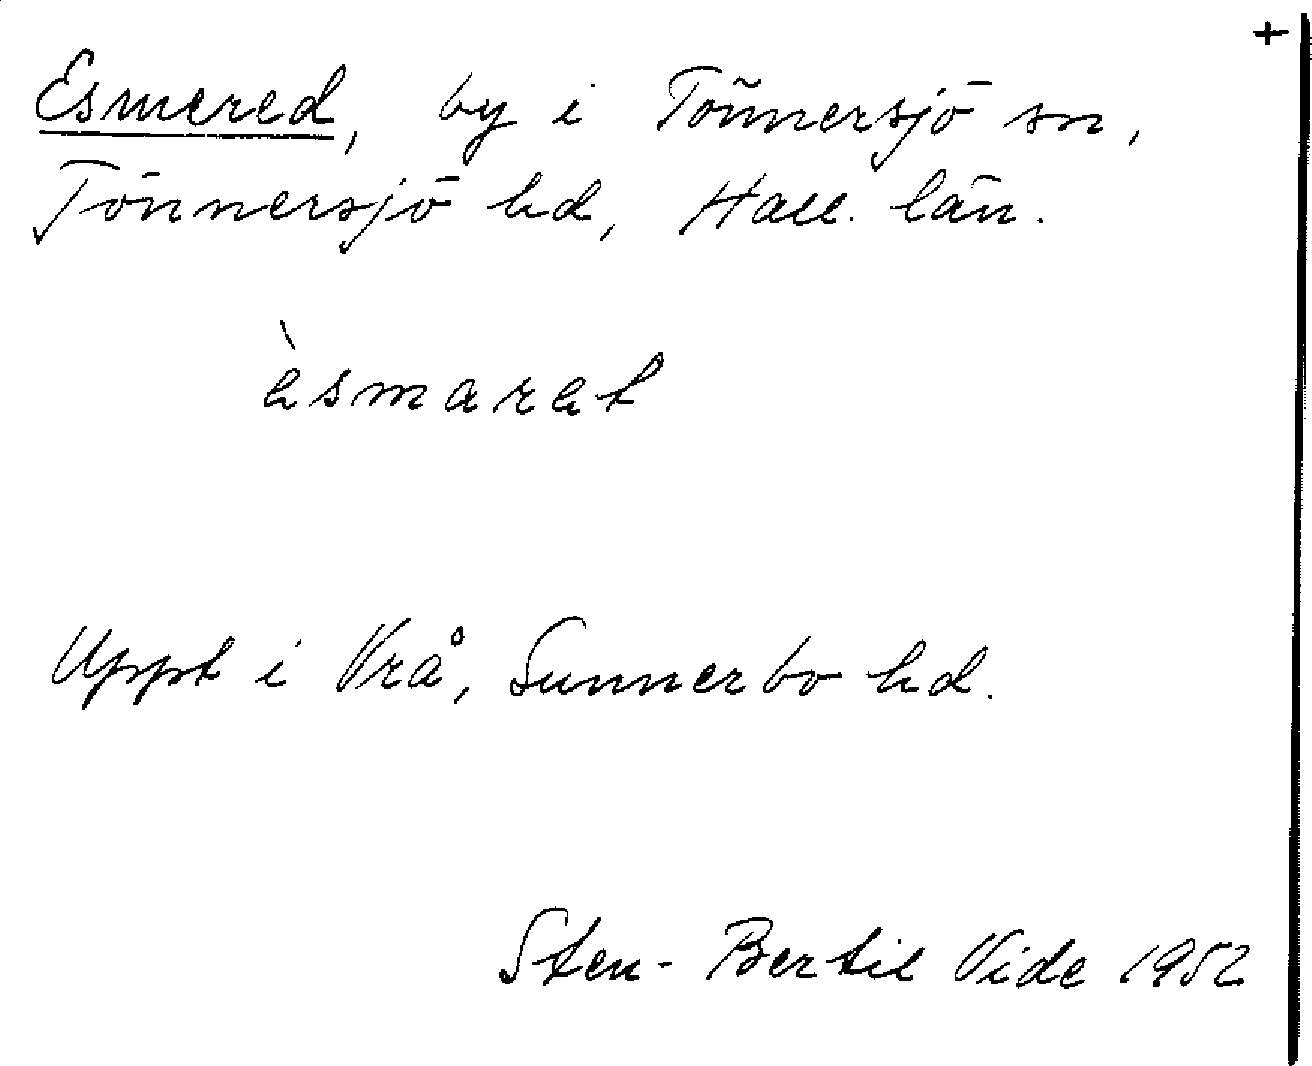 +
Esmered, by i Tönnersjö sn,
Tönnersjö hd, Hall. län.
èsmarat
Uppt i Vrå, Sunnerbo hd.
Sten-Bertil Vide 1952